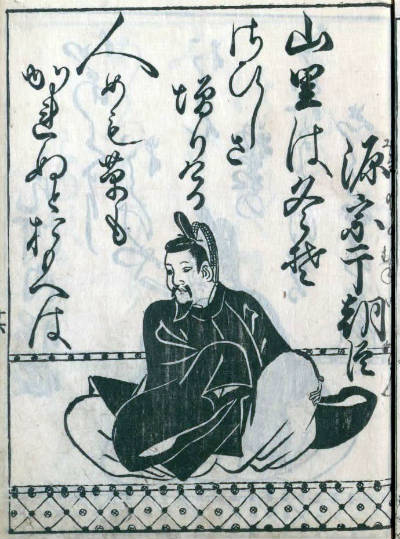 源宗于朝臣
山里は冬そ
さひしさ
増りける
人めも草も
かれぬとおもへは